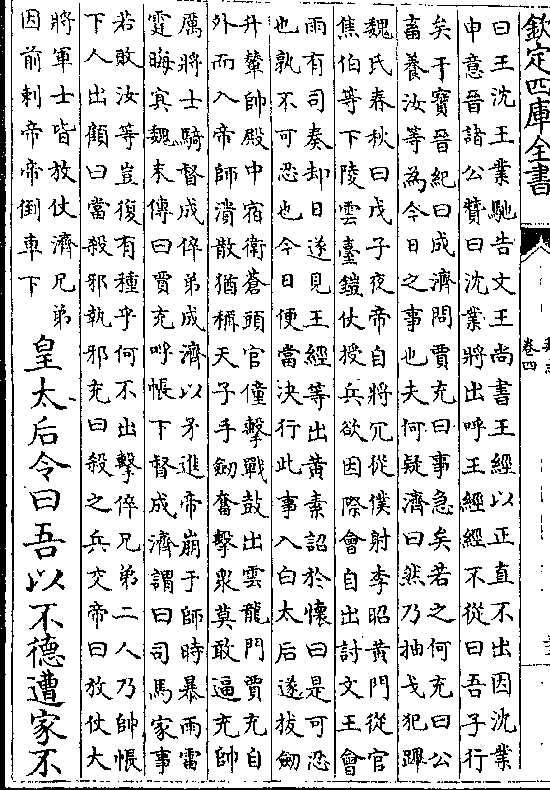 欽定四庫全書
卷四
曰王沈王業馳告文王尚書王經以正直不出因沈業
申意晉諸公贊曰沈業將出呼王經經不從曰吾子行
矣干寶晉紀曰成濟問賈充曰事急矣若之何充曰公
畜養汝等為今日之事也夫何疑濟曰然乃抽戈犯蹕
魏氏春秋曰戊子夜帝自將冗從僕射李昭黃門從官
焦伯等下陵雲臺鎧仗授兵欲因際會自出討文王會
雨有司奏却日遂見王經等出黃素詔於懷曰是可忍
也孰不可忍也今日便當決行此事入白太后遂拔劒
升輦帥殿中宿衛蒼頭官僮擊戰鼓出雲龍門賈充自
外而入帝師潰散猶稱天子手劒奮擊衆莫敢逼充帥
厲將士騎督成倅弟成濟以矛進帝崩于師時暴雨雷
霆晦冥魏末傳曰賈充呼帳下督成濟謂曰司馬家事
若敗汝等豈復有種乎何不出擊倅兄弟二人乃帥帳
下人出顧曰當殺邪執邪充曰殺之兵交帝曰放仗大
將軍士皆放仗濟兄弟
因前刺帝帝倒車下
皇太后令曰吾以不德遭家不